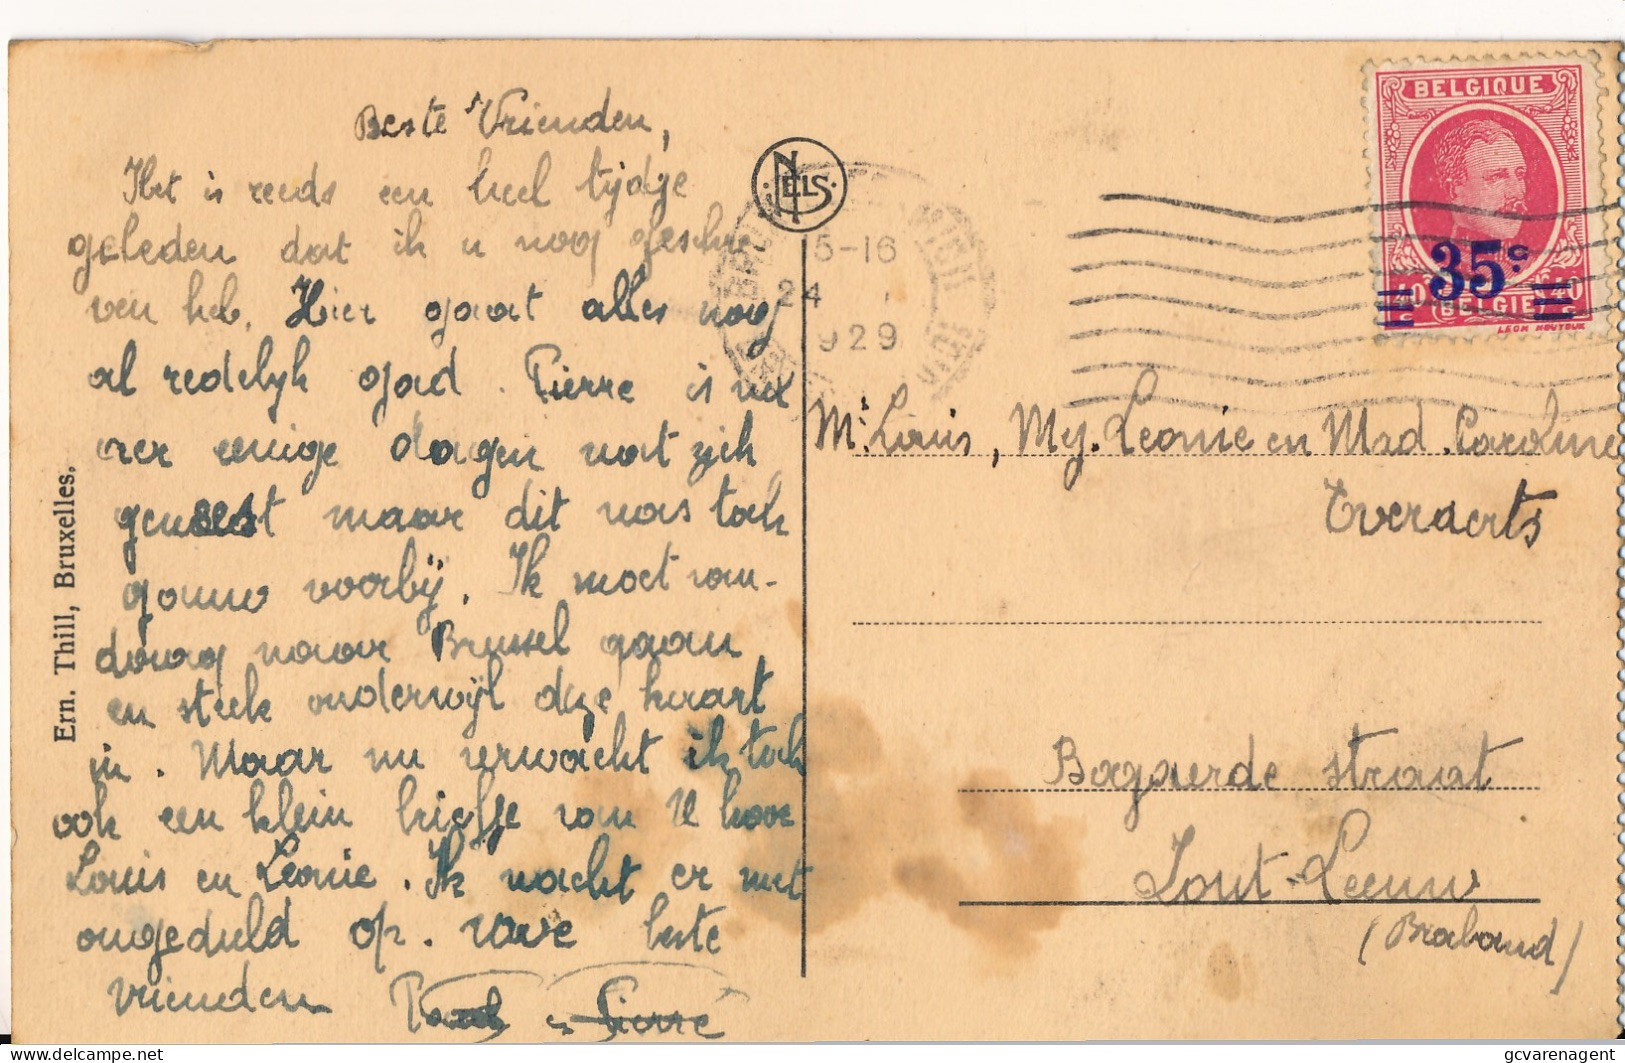 Beste Vrienden,
Het is reeds een heel tijdje
geleden dat ik u nog geschre-
ven heb. Hier gaat alles nog
al redelijk goed. Pierre is
over eenige dagen wat ziek
geweest maar dit was toch
gauw voorbij. Ik moet van-
daag naar Brussel gaan
en steek onderwijl deze kaart
in. Maar nu verwacht ik toch
ook een klein briefje van U hoor
Louis en Leonie. Ik wacht er met
ongeduld op. Uwe beste
vrienden
Pierre
Ern. Thill, Bruxelles.
NELS
15-16
24
1929
BELGIQUE
35c
40 BELGIE 40
LEON HOUYOUX
Mr. Louis, Mej. Leonie en Mad. Caroline
Everaerts
Bogaerde straat
Lout-Leeuw
(Braband)
gcvarenagent
delcampe.net